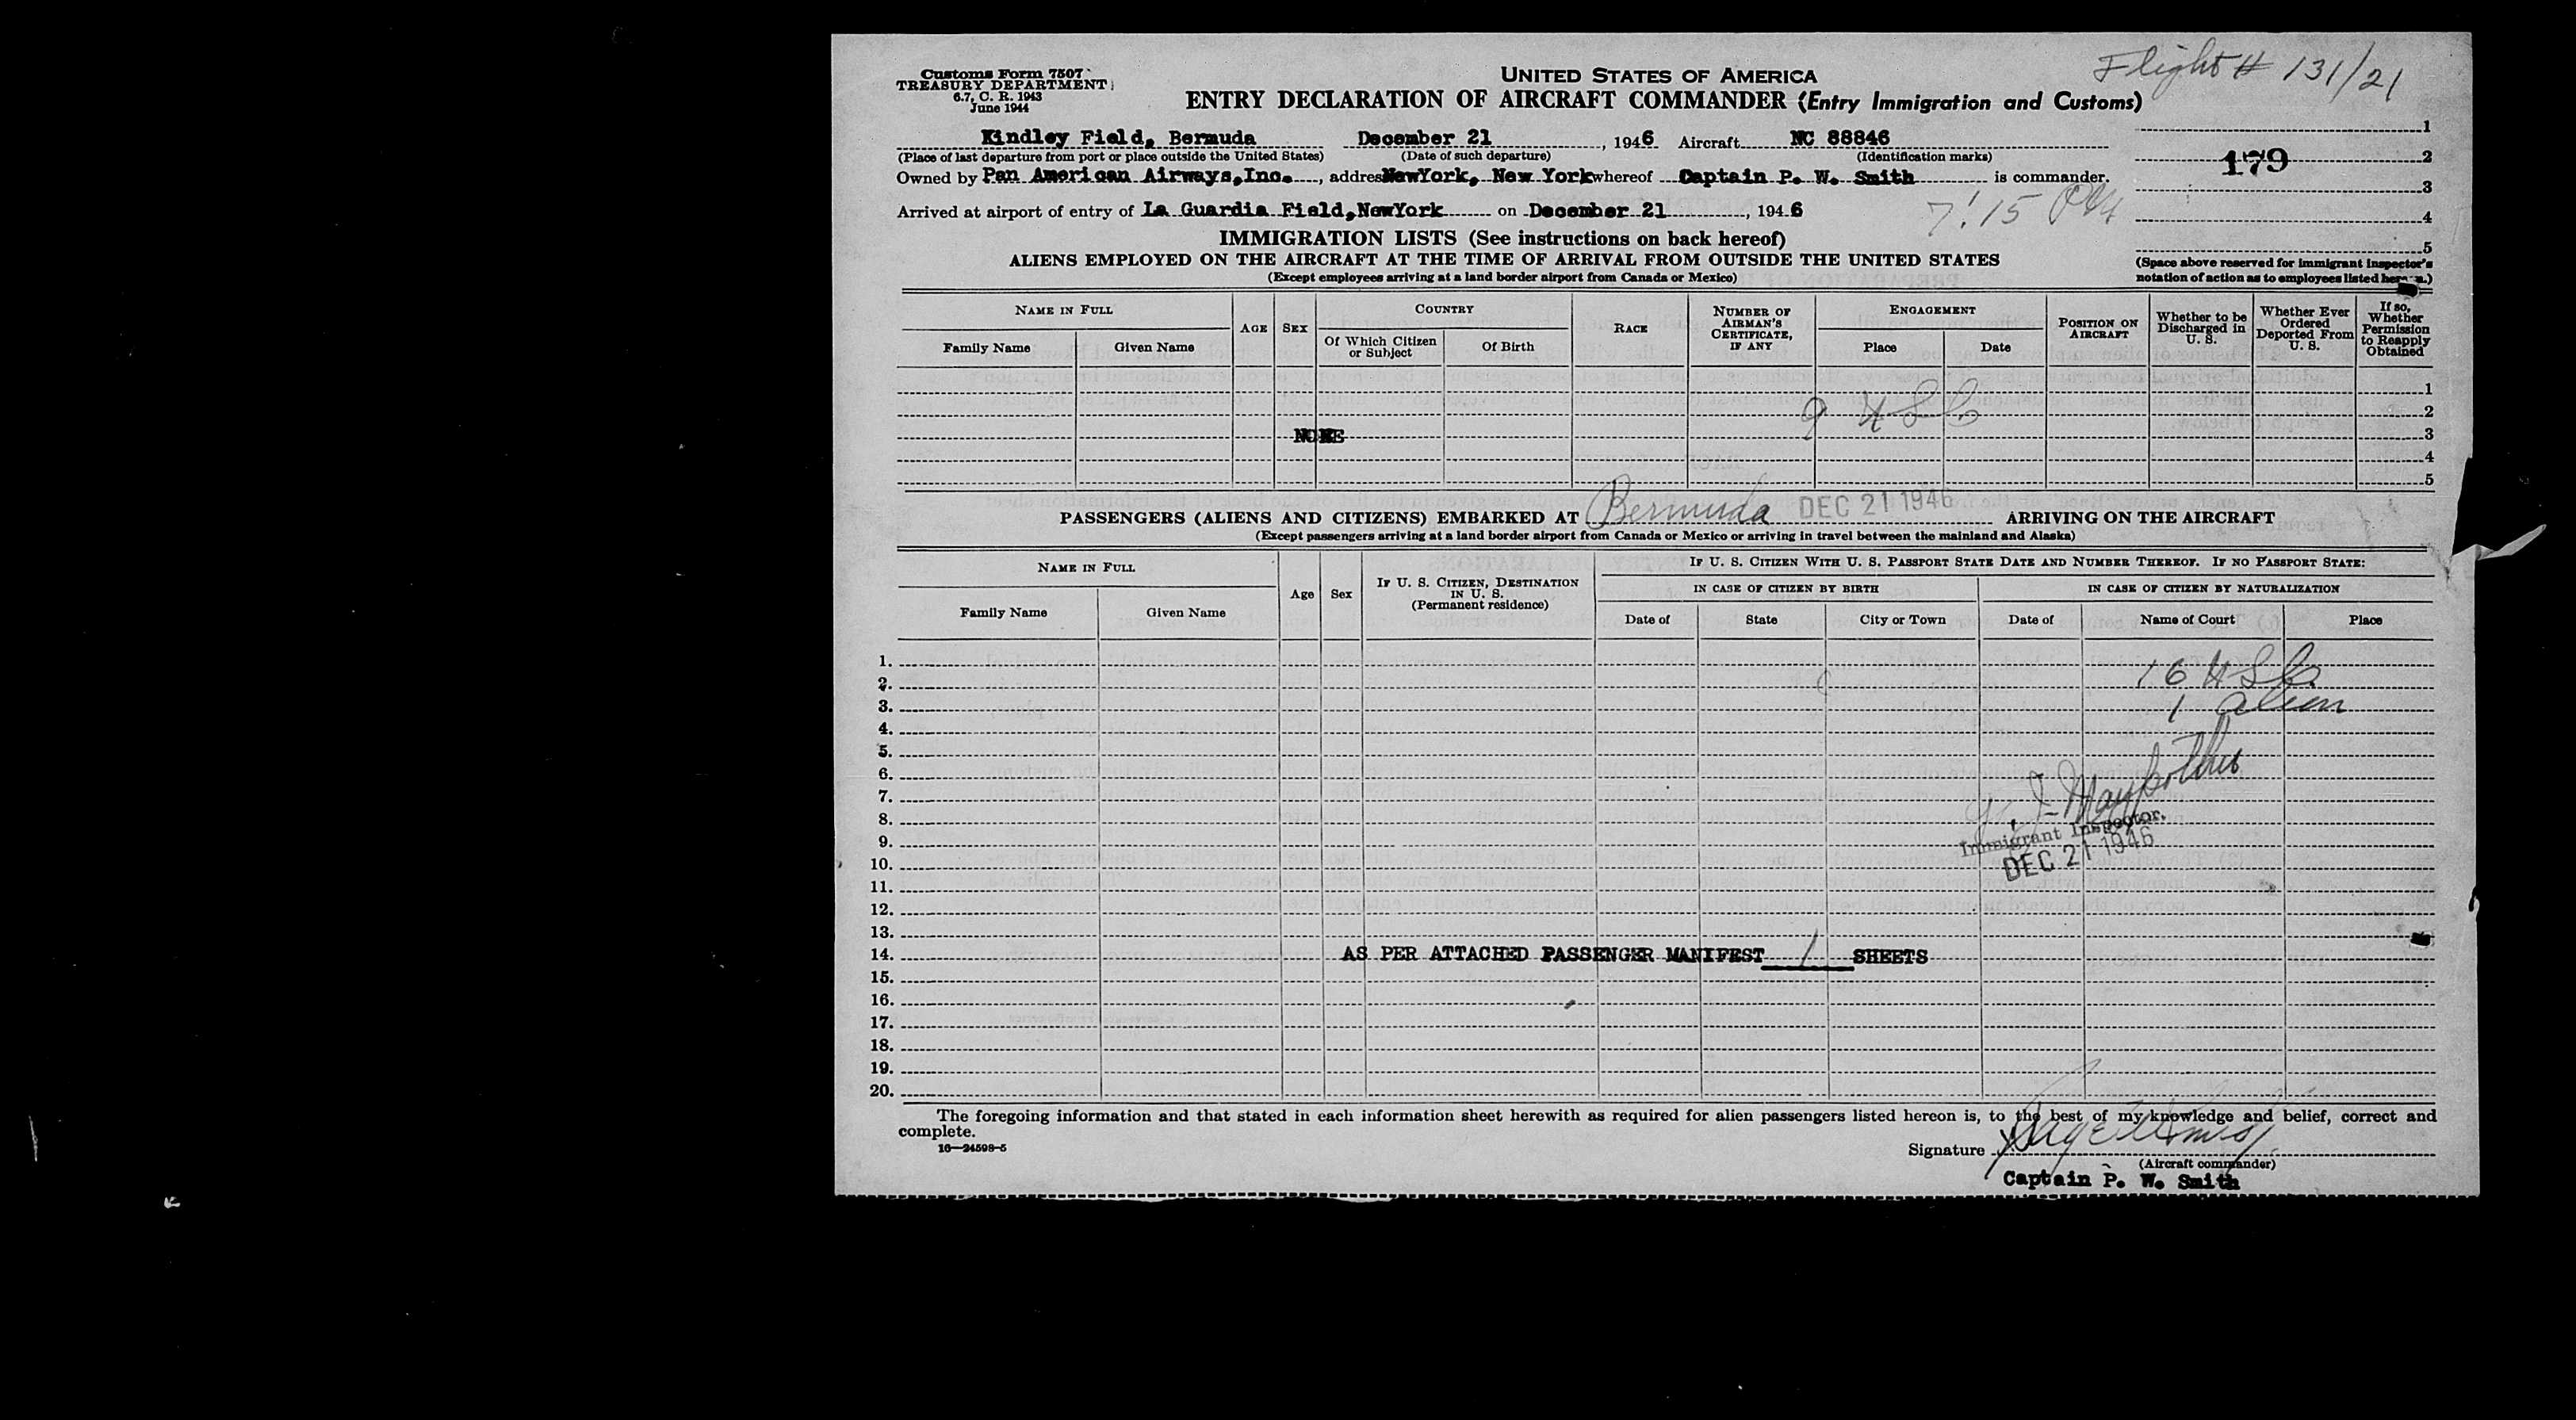 Customs Form 7507
TREASURY DEPARTMENT
6.7, C. R. 1943
June 1944
UNITED STATES OF AMERICA
ENTRY DECLARATION OF AIRCRAFT COMMANDER (Entry Immigration and Customs)
Flight # 131/21
Kindley Field, Bermuda December 21, 1946 Aircraft NC 88846
(Place of last departure from port or place outside the United States) (Date of such departure) (Identification marks)
Owned by Pan American Airways, Inc., addres NewYork, New York whereof Captain P. W. Smith is commander.
Arrived at airport of entry of La Guardia Field, NewYork on December 21, 1946
7:15 PM
1
2
179
3
4
5
(Space above reserved for immigrant inspector's
notation of action as to employees listed hereon.)
IMMIGRATION LISTS (See instructions on back hereof)
ALIENS EMPLOYED ON THE AIRCRAFT AT THE TIME OF ARRIVAL FROM OUTSIDE THE UNITED STATES
(Except employees arriving at a land border airport from Canada or Mexico)
NAME IN FULL
Family Name Given Name
AGE SEX
COUNTRY
Of Which Citizen or Subject Of Birth
RACE
NUMBER OF AIRMAN'S CERTIFICATE, IF ANY
ENGAGEMENT
Place Date
POSITION ON AIRCRAFT
Whether to be Discharged in U. S.
Whether Ever Ordered Deported From U. S.
If so, Whether Permission to Reapply Obtained
1
2
9 USC
NONE
3
4
5
PASSENGERS (ALIENS AND CITIZENS) EMBARKED AT Bermuda DEC 21 1946 ARRIVING ON THE AIRCRAFT
(Except passengers arriving at a land border airport from Canada or Mexico or arriving in travel between the mainland and Alaska)
NAME IN FULL
Family Name Given Name
Age Sex
IF U. S. CITIZEN, DESTINATION IN U. S.
(Permanent residence)
IF U. S. CITIZEN WITH U. S. PASSPORT STATE DATE AND NUMBER THEREOF. IF NO PASSPORT STATE:
IN CASE OF CITIZEN BY BIRTH IN CASE OF CITIZEN BY NATURALIZATION
Date of State City or Town Date of Name of Court Place
1.
2. 16 USC.
3. 1 alien
4.
5.
6.
7.
8.
Immigrant Inspector.
9.
DEC 21 1946
10.
11.
12.
13.
14. AS PER ATTACHED PASSENGER MANIFEST 1 SHEETS
15.
16.
17.
18.
19.
20.
The foregoing information and that stated in each information sheet herewith as required for alien passengers listed hereon is, to the best of my knowledge and belief, correct and
complete.
16—24598-5
Signature
(Aircraft commander)
Captain P. W. Smith